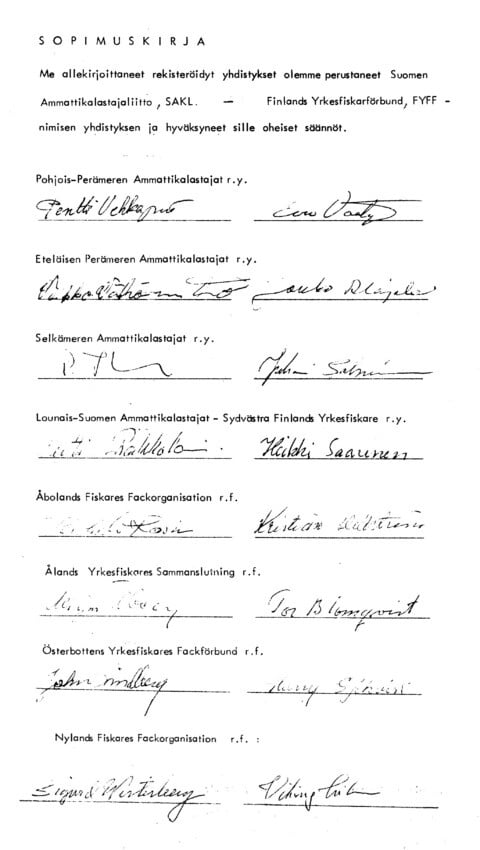 SOPIMUSKIRJA
Me allekirjoittaneet rekisteröidyt yhdistykset olemme perustaneet Suomen
Ammattikalastajaliitto, SAKL. — Finlands Yrkesfiskarförbund, FYFF -
nimisen yhdistyksen ja hyväksyneet sille oheiset säännöt.
Pohjois-Perämeren Ammattikalastajat r.y.
Pentti
Eteläisen Perämeren Ammattikalastajat r.y.
Jouko
Selkämeren Ammattikalastajat r.y.
Juhani
Lounais-Suomen Ammattikalastajat - Sydvästra Finlands Yrkesfiskare r.y.
Heikki Saarinen
Åbolands Fiskares Fackorganisation r.f.
Kristian
Ålands Yrkesfiskares Sammanslutning r.f.
Tor Blomqvist
Österbottens Yrkesfiskares Fackförbund r.f.
John Lindberg
Nylands Fiskares Fackorganisation r.f. :
Sigurd Westerberg Viking